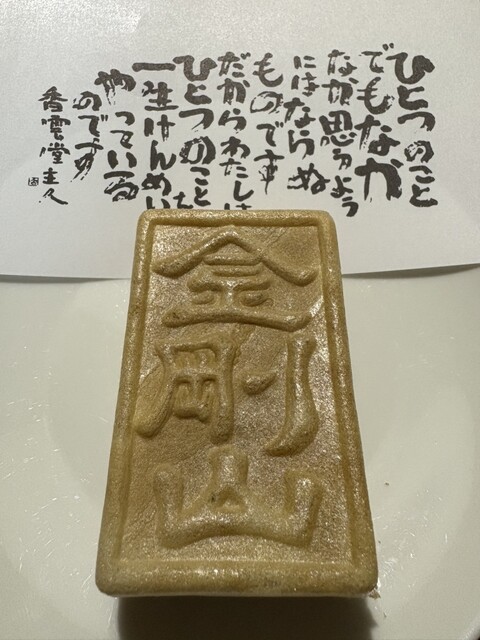 ひとつのこと
でもなか
なか思うよう
にはならぬ
ものです
だからわたしは
ひとつのことを
一生けんめい
やっている
のです
香雲堂主人
金剛山